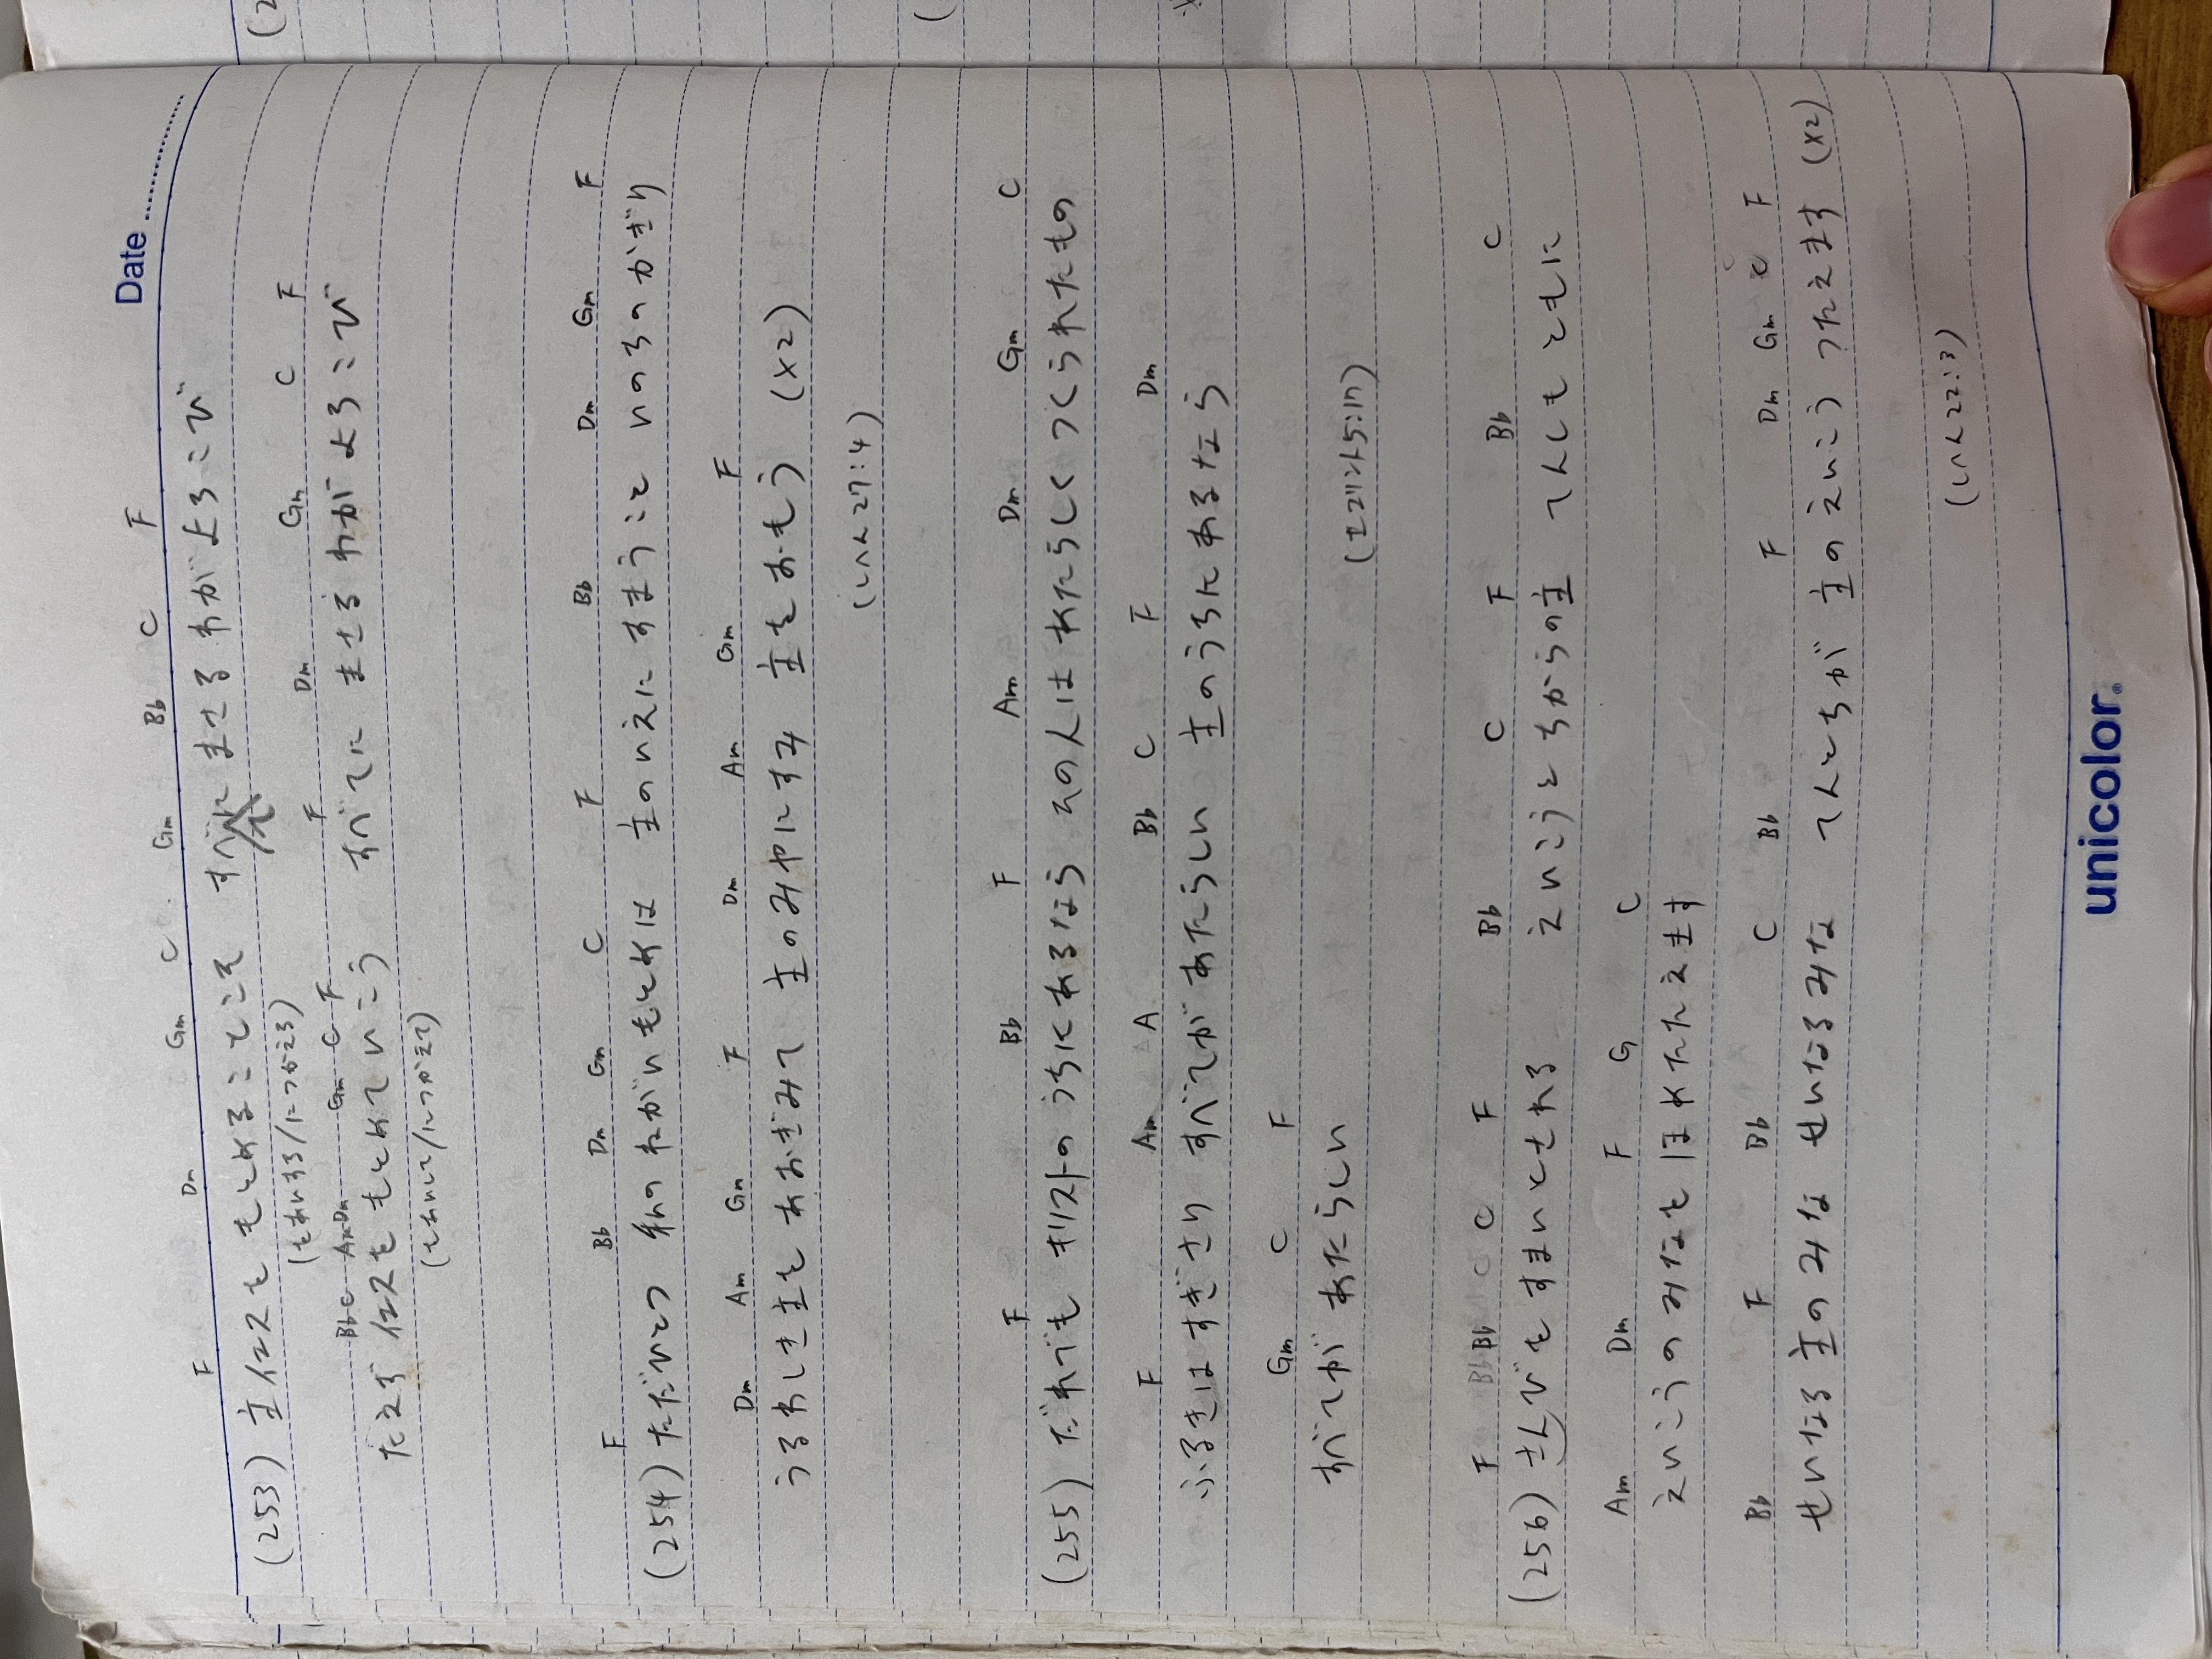 Date
F Dm Gm C Gm Bb C F
(253) 主イエスを もとめることこそ すべてに まさる わが よろこび
(をあいする/につかえる)
Bb C Am Dm Gm C F F Dm Gm C F
たえず イエスを もとめて いこう すべてに まさる わが よろこび
(をあいして/につかえて)
F Bb Dm Gm C F Bb Dm Gm F
(254) ただひとつ 私の ねがいもとめは 主の いえに すまうこと いのちのかぎり
Dm Am Gm F Dm Am Gm F
うるわしき主を あおぎみて 主のみやにすみ 主をおもう (x2)
(しへん27:4)
F Bb F Am Dm Gm C
(255) だれでも キリストの うちに あるなら その人は あたらしく つくられたもの
F Am A Bb C F Dm
ふるきは すぎさり すべてが あたらしい 主のうちに あるなら
Gm C F
すべてが あたらしい
(エコリント5:17)
F Bb C F Bb C F Bb C
(256) さんびを すまいとされる えいこうと ちからの主 てんも ともに
Am Dm F G C
えいこうの みなを ほめたたえます
Bb F Bb C Bb F Dm Gm C F
せいなる 主の みな せいなる みな てんとちが 主の えいこう つたえます (x2)
(しへん22:3)
unicolor®